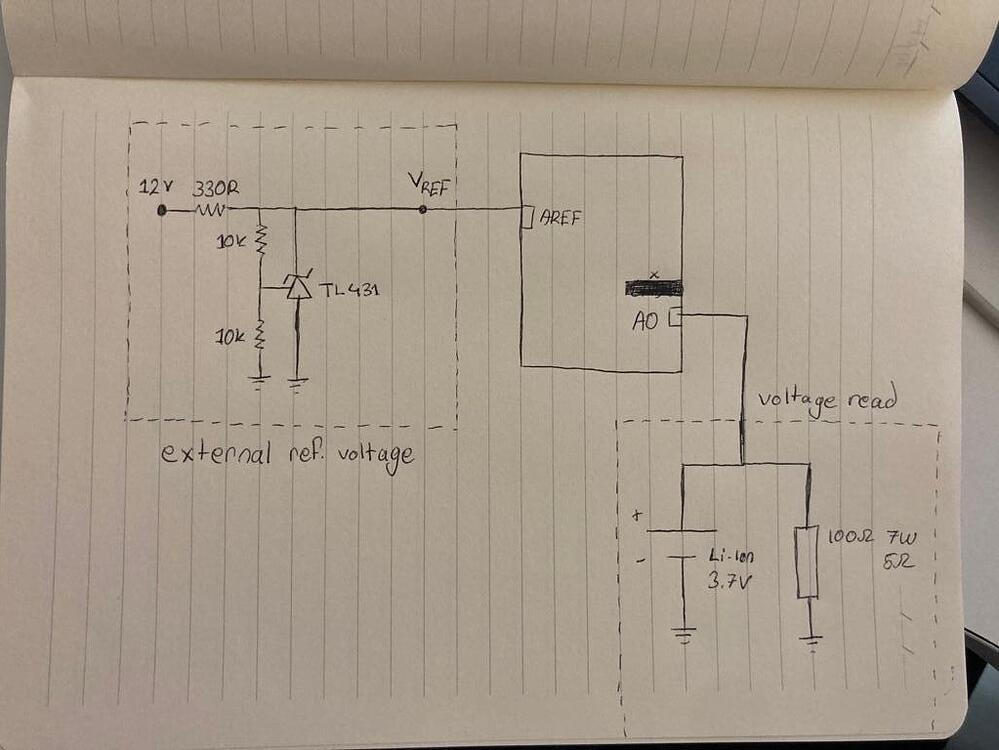 12V 330R
VREF
10k
TL431
10k
external ref. voltage
AREF
x
A0
voltage read
+
-
Li-Ion
3.7V
100Ω 7W
5Ω